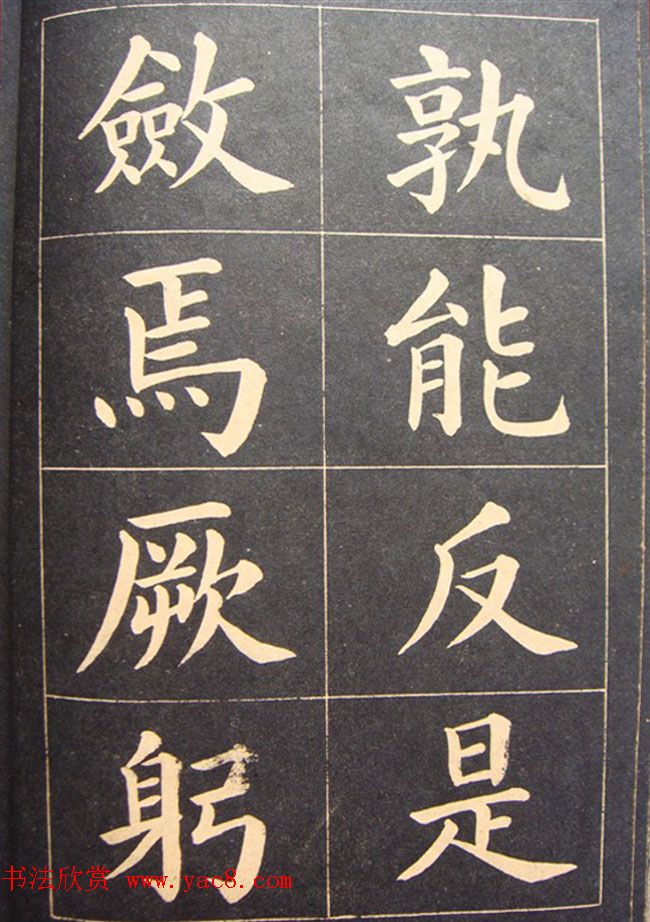 孰能反是
歛焉厥躬
书法欣赏 www.yac8.com